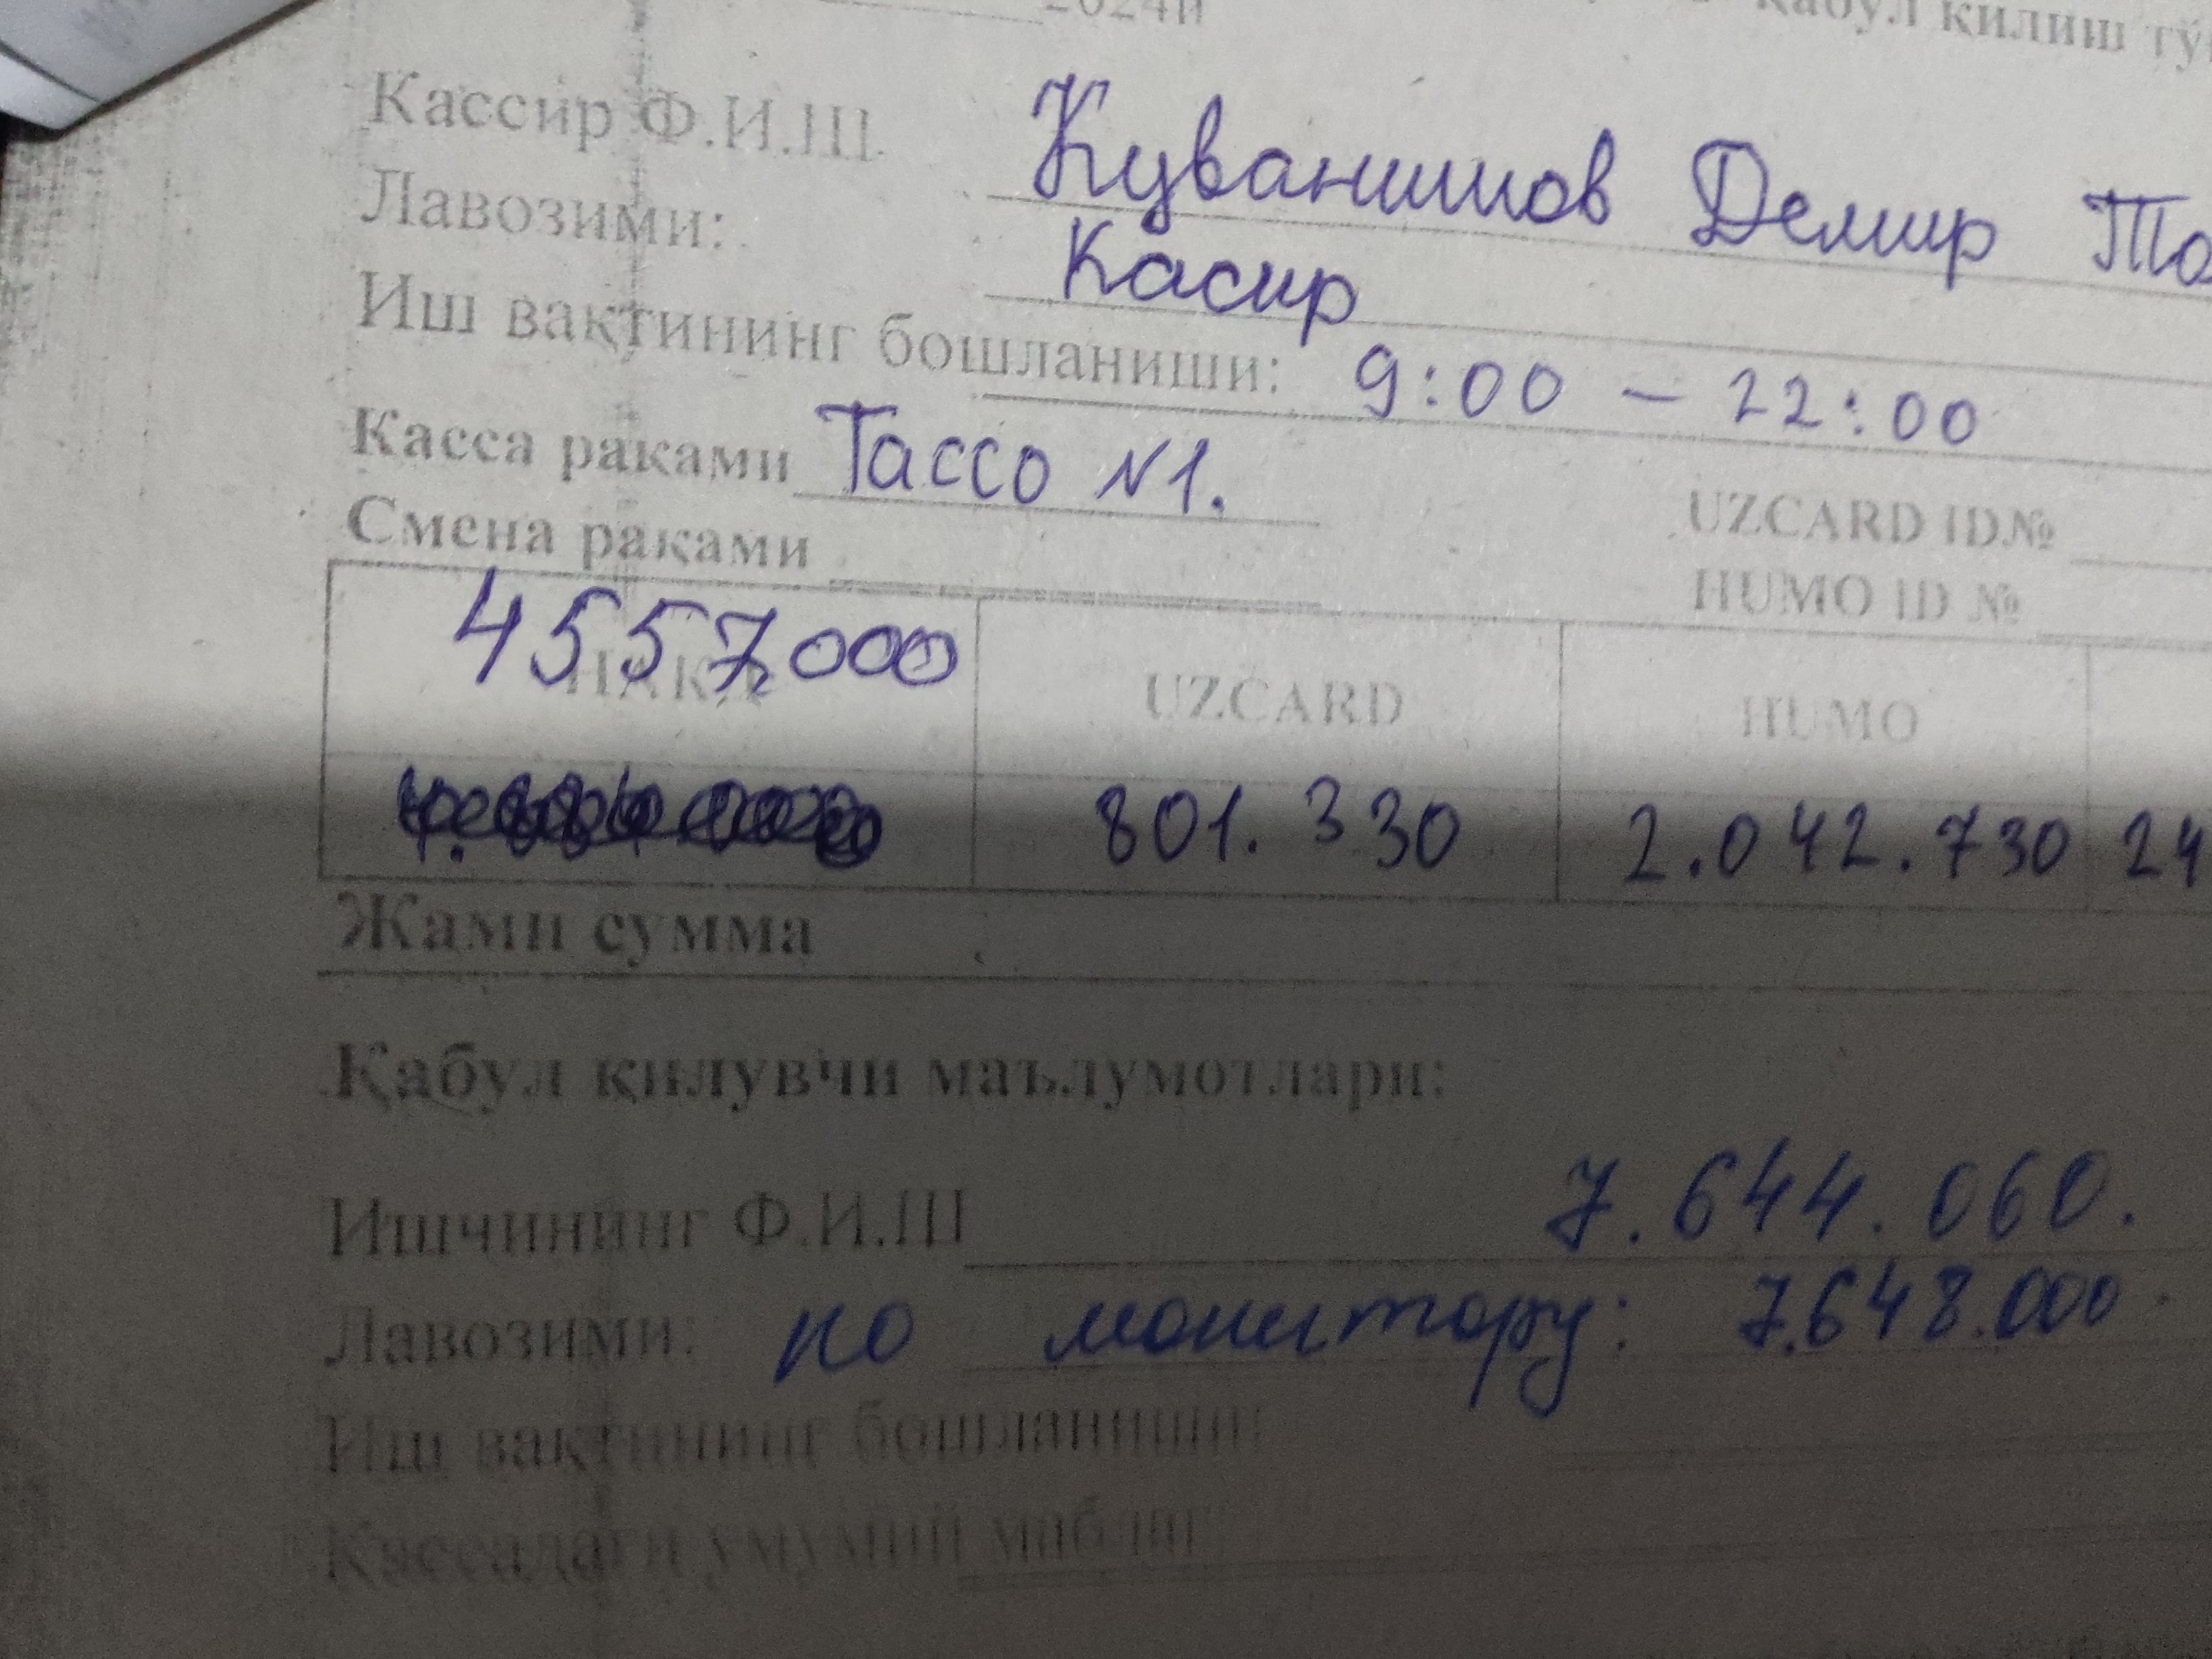 2024й
қабул қилиш
Кассир Ф.И.Ш. Куванишов Демир
Лавозими: Касир
Иш вақтининг бошланиши: 9:00 – 22:00
Касса раками Тассо N1.
Смена раками
UZCARD ID№
HUMO ID №
4557,000
UZCARD HUMO
801.330 2.042.730 24
Жами сумма
Қабул қилувчи маълумотлари:
Ишчининг Ф.И.Ш 7.644.060.
Лавозими: по монитору: 7.648.000.
Иш вақтининг бошланиши:
Кассадаги умумий маблағ